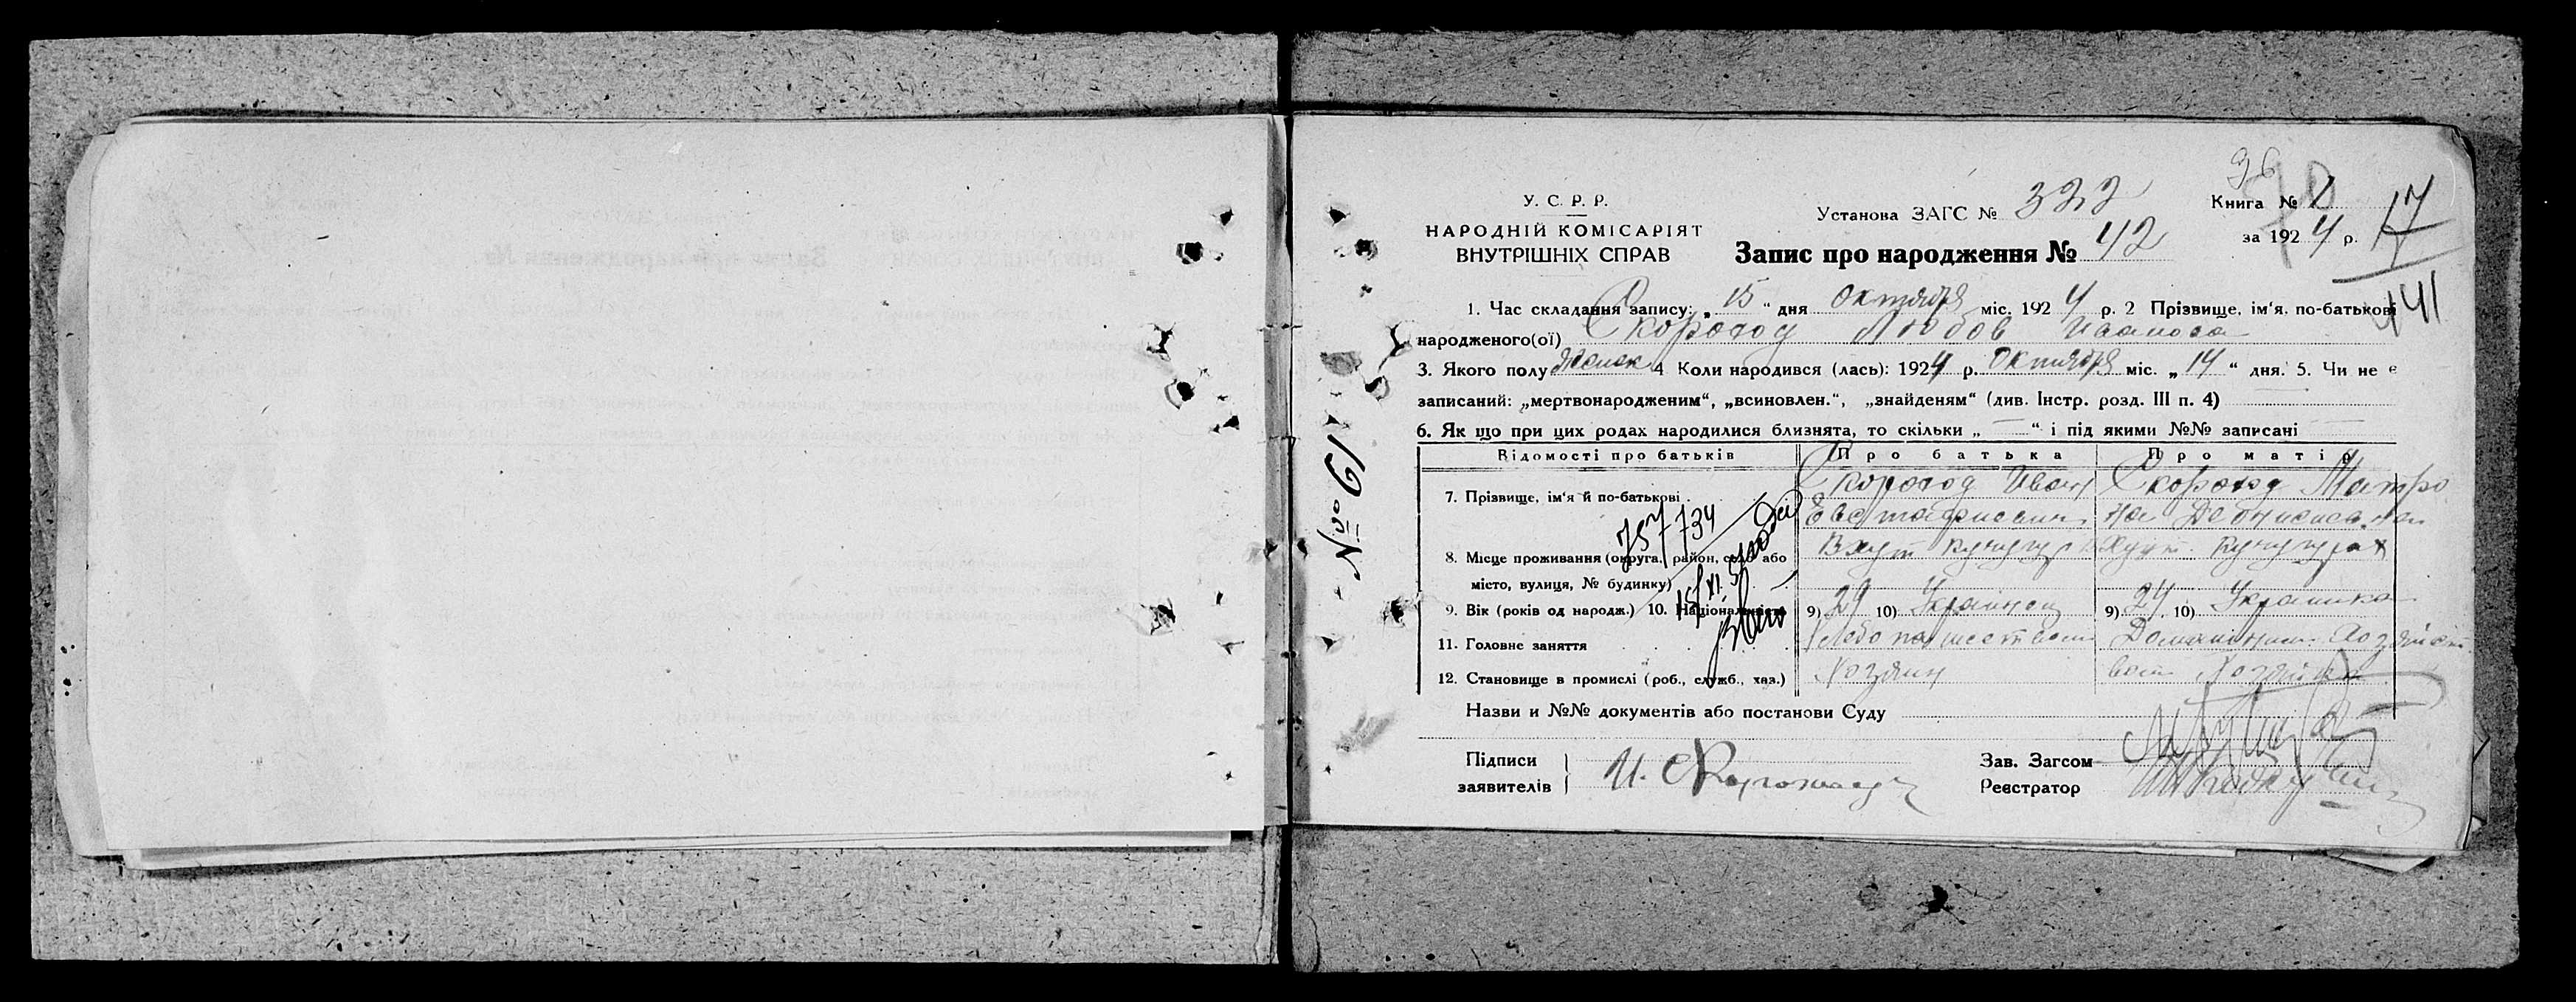 96
У. С. Р. Р.
НАРОДНІЙ КОМІСАРІЯТ
ВНУТРІШНІХ СПРАВ
Установа ЗАГС № 322
Запис про народження № 42
Книга № 1
за 1924 р.
17
441
1. Час складання запису: „15“ дня Октября міс. 1924 р. 2 Прізвище, ім'я, по-батькові
народженого(ої) Скороход Любов Иванова
3. Якого полу женск 4 Коли народився (лась): 1924 р. Октября міс. „14“ дня. 5. Чи не є
записаний: „мертвонародженим“, „всиновлен.“, „знайденям“ (див. Інстр. розд. III п. 4)
6. Як що при цих родах народилися близнята, то скільки „ “ і під якими №№ записані
№ 19
Відомості про батьків
Про батька
Про матір
7. Прізвище, ім'я й по-батькові
Скороход Иван
Евстафиевич
Скороход Матро
на
8. Місце проживання (округа, район, село або
місто, вулиця, № будинку)
Хут
9. Вік (років од народж.) 10. Національність
9) 29 10) Украинец
9) 24 10) Украинка
11. Головне заняття
Домашним хозяйст
вом
12. Становище в промислі (роб., служб., хаз.)
Хозяин
Хозяйка
757734
Назви и №№ документів або постанови Суду
Підписи
заявителів
И. Скороход
Зав. Загсом
Реєстратор